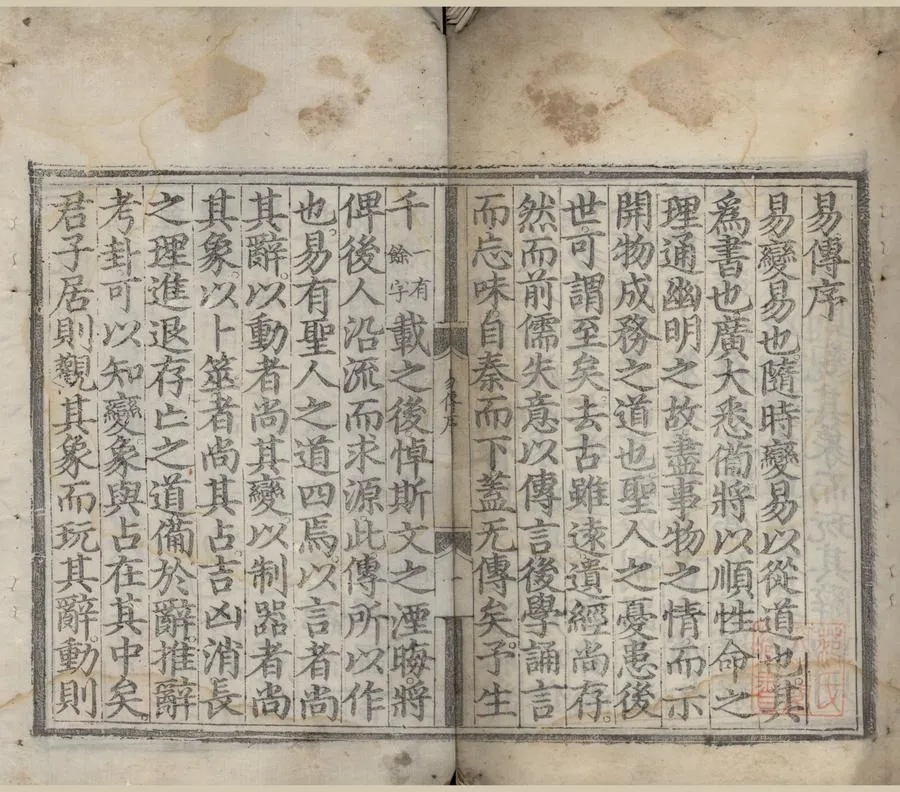 易傳序
易變易也隨時變易以從道也其
爲書也廣大悉備將以順性命之
理通幽明之故盡事物之情而示
開物成務之道也聖人之憂患後
世可謂至矣去古雖遠遺經尚存
然而前儒失意以傳言後學誦言
而忘味自秦而下蓋无傳矣予生
易傳序
一
千一有餘字載之後悼斯文之湮晦將
俾後人沿流而求源此傳所以作
也易有聖人之道四焉以言者尚
其辭以動者尚其變以制器者尚
其象以卜筮者尚其占吉凶消長
之理進退存亡之道備於辭推辭
考卦可以知變象與占在其中矣
君子居則觀其象而玩其辭動則